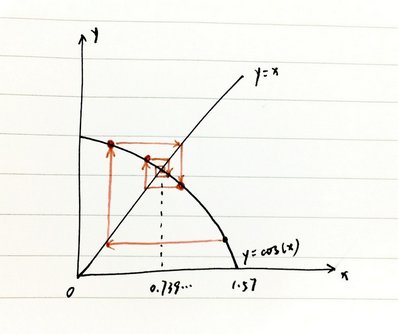 y
y=x
y=cos(x)
x
0
0.739...
1.57